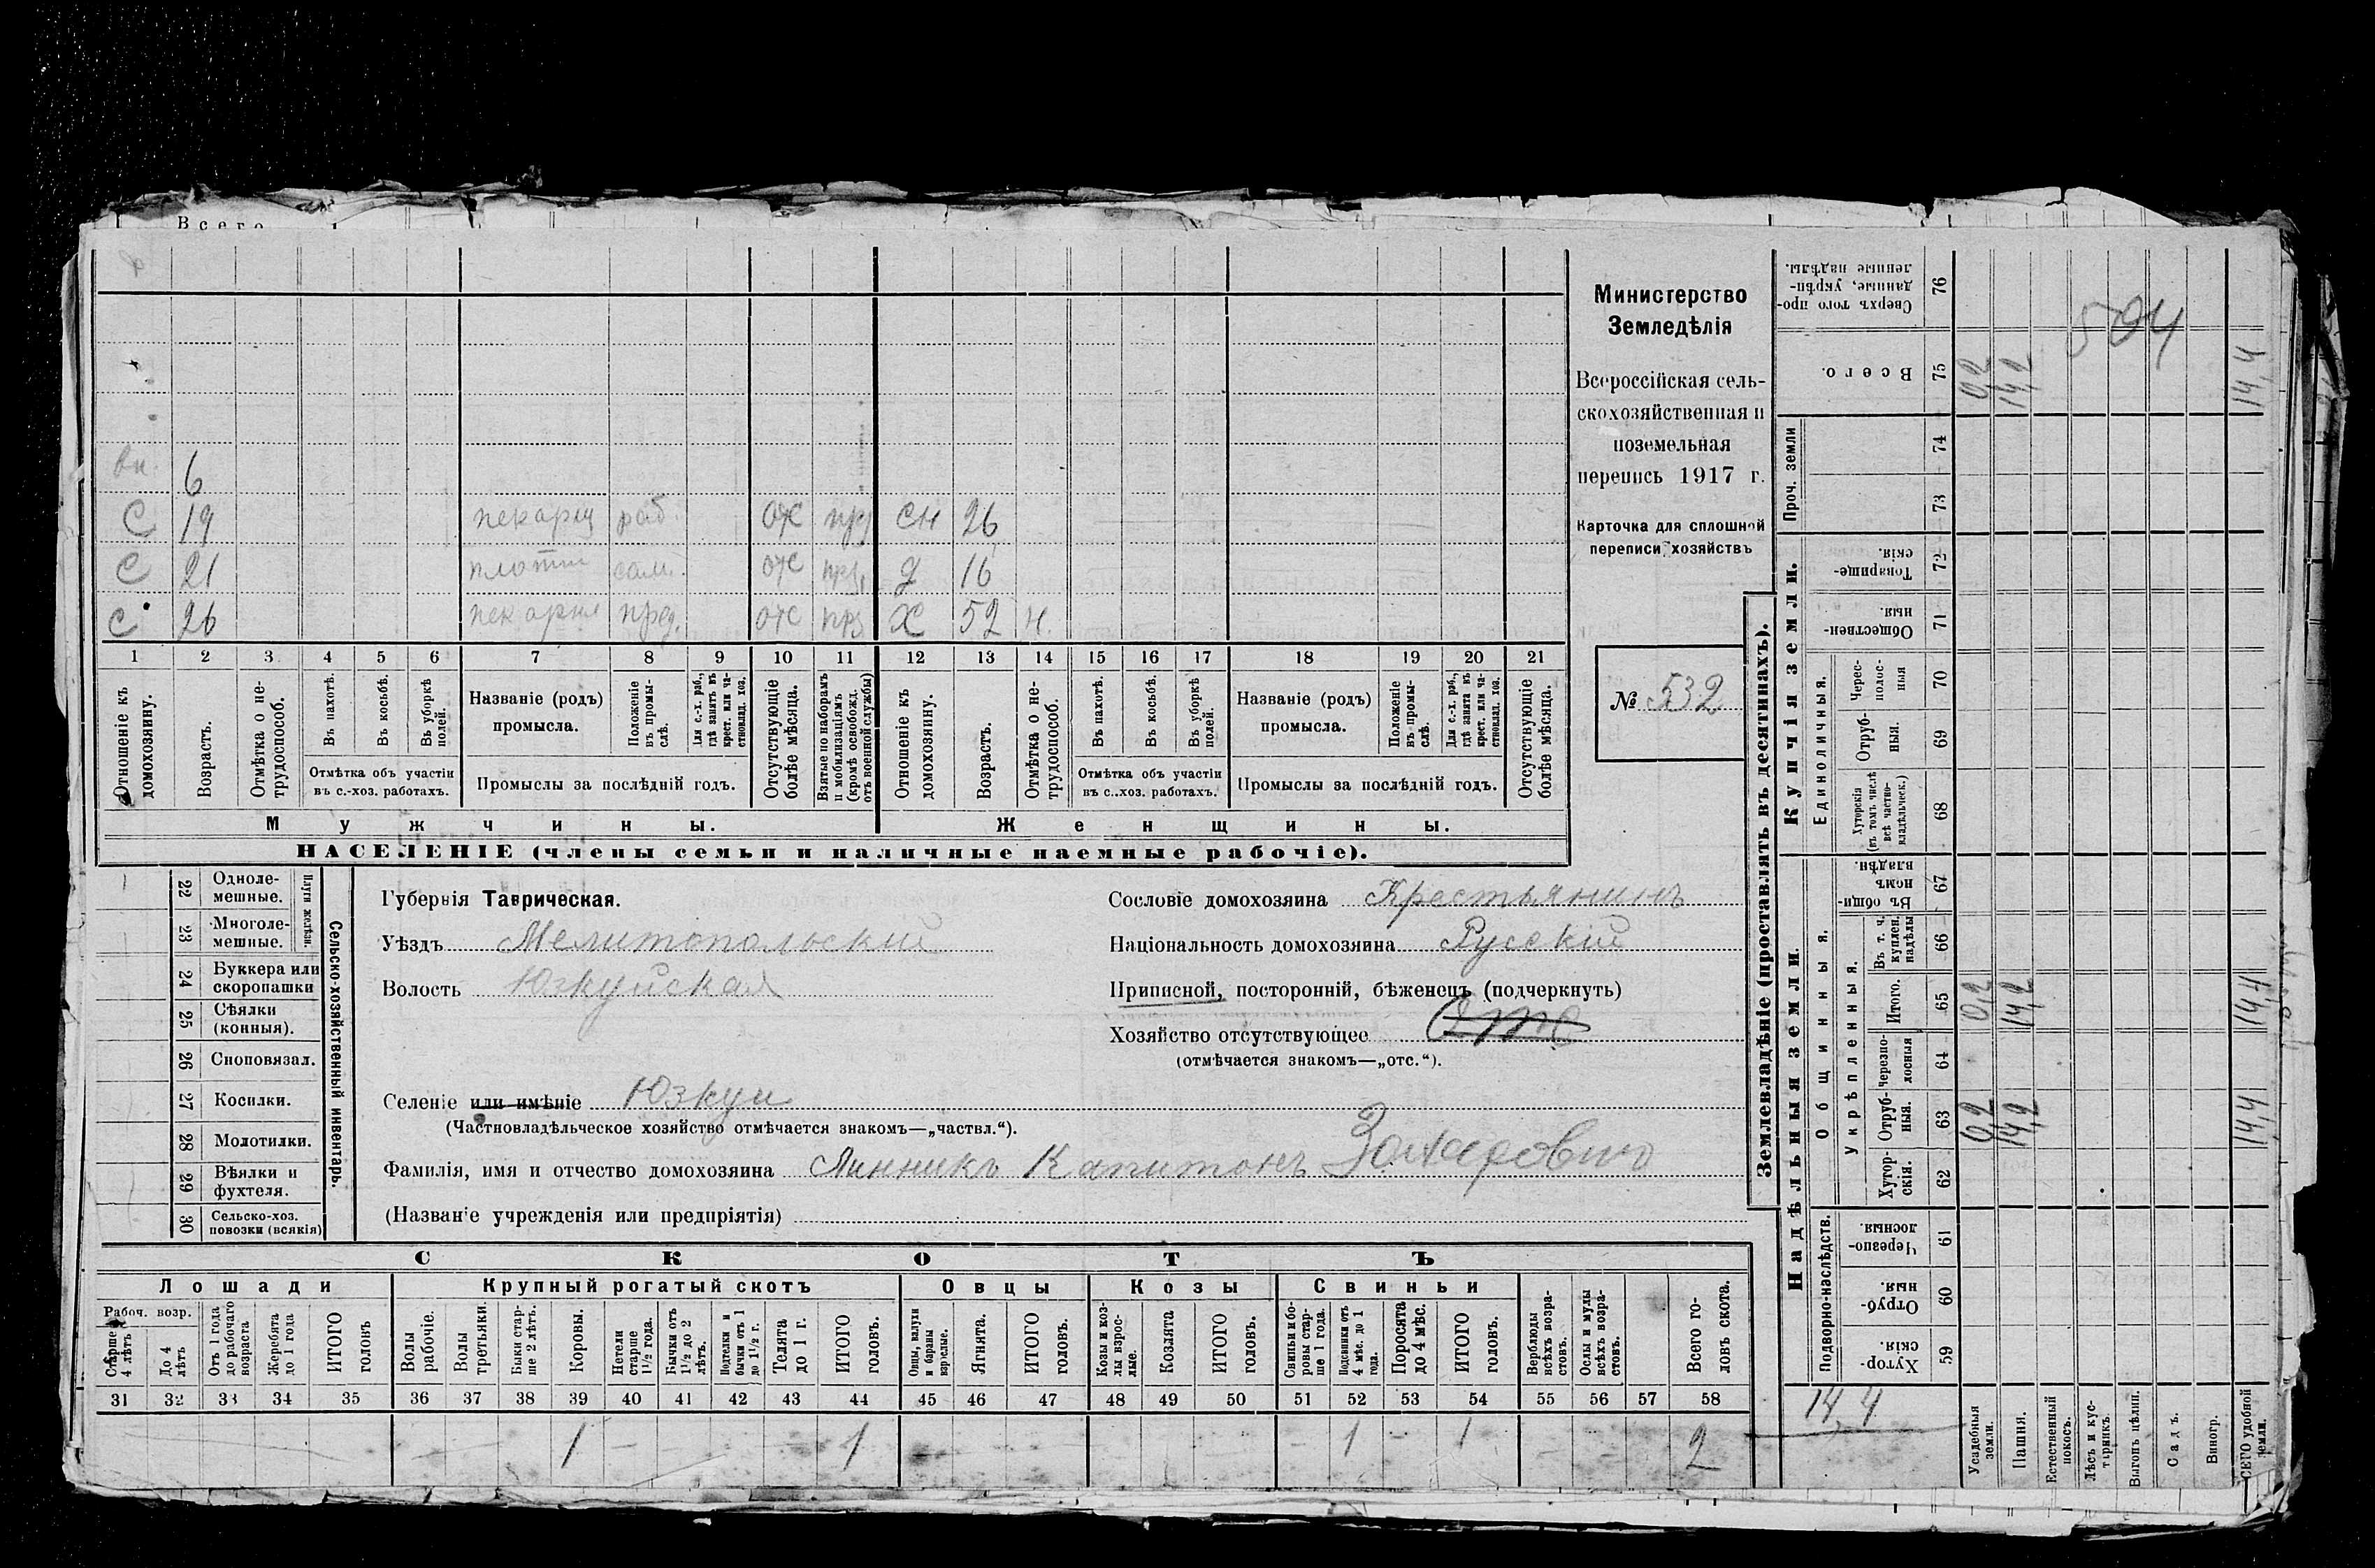 Всего
вн. 6
С 19 пекарщ раб. отс прз сн 26
С 21 плотн сам. отс прз. д 16
С 26 пекарня пред. отс прз Х 52 н.
1 2 3 4 5 6 7 8 9 10 11 12 13 14 15 16 17 18 19 20 21
Отношеніе къ домохозяину.
Возрастъ.
Отмѣтка о нетрудоспособ.
Въ пахотѣ.
Въ косьбѣ.
Въ уборкѣ полей.
Отмѣтка объ участіи въ с.-хоз. работахъ.
Названіе (родъ) промысла.
Положеніе въ промыслѣ.
Для с.-х. раб., гдѣ занятъ въ крест. или частновлад. хоз.
Промыслы за послѣдній годъ.
Отсутствующіе болѣе мѣсяца.
Взятые по наборамъ и мобилизаціямъ (кромѣ освобожд. отъ военной службы)
Отношеніе къ домохозяину.
Возрастъ.
Отмѣтка о нетрудоспособ.
Въ пахотѣ.
Въ косьбѣ.
Въ уборкѣ полей.
Отмѣтка объ участіи въ с.-хоз. работахъ.
Названіе (родъ) промысла.
Положеніе въ промыслѣ.
Для с.-х. раб., гдѣ занята въ крест. или частновлад. хоз.
Промыслы за послѣдній годъ.
Отсутствующіе болѣе мѣсяца.
Мужчины. Женщины.
НАСЕЛЕНІЕ (члены семьи и наличные наемные рабочіе).
Министерство
Земледѣлія
Всероссійская сель-
скохозяйственная и
поземельная
перепись 1917 г.
Карточка для сплошной
переписи хозяйствъ
№ 532
22 Одноле-
мешные.
23 Многоле-
мешные.
Плуги желѣзн.
24 Буккера или
скоропашки
25 Сѣялки
(конныя).
26 Сноповязал.
27 Косилки.
28 Молотилки.
29 Вѣялки и
фухтеля.
30 Сельско-хоз.
повозки (всякія)
Сельско-хозяйственный инвентарь.
Губернія Таврическая.
Уѣздъ Мелитопольскій
Волость Юзкуйская
Сословіе домохозяина Крестьянинъ
Національность домохозяина Русскій
Приписной, посторонній, бѣженецъ (подчеркнуть)
Хозяйство отсутствующее Отс
(отмѣчается знакомъ—„отс.“).
Селеніе или имѣніе Юзкуи
(Частновладѣльческое хозяйство отмѣчается знакомъ—„частвл.“).
Фамилія, имя и отчество домохозяина Линникъ Капитонъ Захарович
(Названіе учрежденія или предпріятія)
СКОТЪ
Лошади Крупный рогатый скотъ Овцы Козы Свиньи
Рабоч. возр.
Старше 4 лѣтъ
До 4 лѣтъ
Отъ 1 года до рабочаго возраста
Жеребята до 1 года
ИТОГО головъ
Волы рабочіе.
Волы третьяки.
Быки старше 2 лѣтъ.
Коровы.
Нетели старше 1½ года.
Бычки отъ 1½ до 2 лѣтъ.
Подтелки и бычки отъ 1 до 1½ г.
Телята до 1 г.
ИТОГО головъ.
Овцы, валухи и бараны взрослые.
Ягнята.
ИТОГО головъ.
Козы и козлы взрослые.
Козлята
ИТОГО головъ.
Свиньи и боровы старше 1 года.
Подсвинки отъ 4 мѣс. до 1 года.
Поросята до 4 мѣс.
ИТОГО головъ.
Верблюды всѣхъ возрастовъ.
Ослы и мулы всѣхъ возрастовъ.
Всего головъ скота.
31 32 33 34 35 36 37 38 39 40 41 42 43 44 45 46 47 48 49 50 51 52 53 54 55 56 57 58
1 1 1 1 2
Землевладѣніе (проставлять въ десятинахъ).
Купчія земли.
Надѣльныя земли.
Сверхъ того проданные, укрѣпленные надѣлы. 76
594
Всего. 75 0,2 14,2 14,4
Проч. земли 74
73
Товарищескія. 72
Общественныя. 71
Единоличныя.
Чересполосныя 70
Отрубныя. 69
Хуторскія (въ томъ числѣ всѣ частновладѣльческ.) 68
Общинныя.
Въ общинномъ владѣн. 67
Укрѣпленныя.
Въ т. ч. куплен. надѣлы 66
Итого. 65 0,2 14,2 14,4
Черезполосныя 64
Отрубныя. 63 0,2 14,2 14,4
Хуторскія. 62
Подворно-наслѣдств.
Черезполосныя 61
Отрубныя. 60
Хуторскія. 59
14,4
Усадебныя земли.
Пашня.
Естественный покосъ.
Лѣсъ и кустарникъ.
Выгонъ цѣлин.
Садъ.
Виногр.
СЕГО удобной земли.